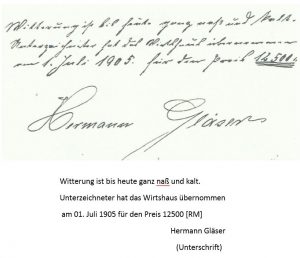 Witterung ist bis heute ganz naß und kalt.
Unterzeichneter hat das Wirthaus übernommen
am 1. Juli 1905. für den Preis 12,500.
Hermann Gläser
Witterung ist bis heute ganz naß und kalt.
Unterzeichneter hat das Wirtshaus übernommen
am 01. Juli 1905 für den Preis 12500 [RM]
Hermann Gläser
(Unterschrift)